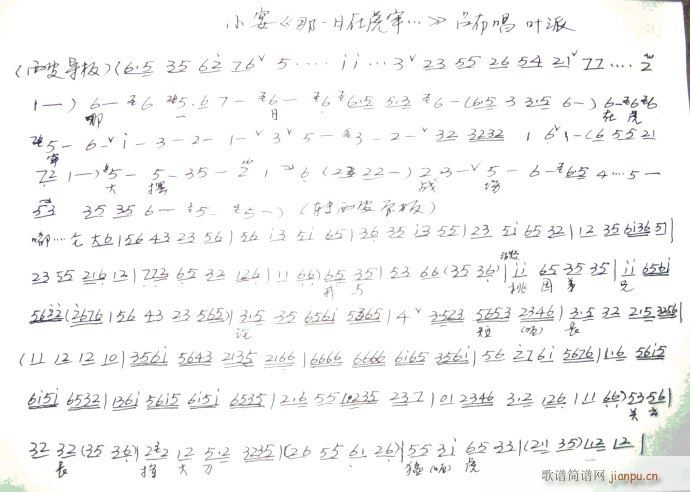 小宴《那一日在虎牢…》 吕布唱 叶派
(西皮导板)(6·5 35 62 76ˇ 5···· ii···3ˇ 23 55 26 54 21ˇ 77···· 2
1—) 6— 6 5·6 7— 6— 6 6·5 5·3 6—(6·5 3 3·5 6—) 6—6 6
哪 一 日 在 虎
5— 6—ˇi—3—2—1—ˇ3ˇ5— 3—2—ˇ32 3232 1 6ˇ1—(6 55 21
牢
72 1—) 5— 5—35—2 1 6 (22 22—) 2 3—ˇ5—6—6·5 4···5—
大 摆 战 场
53 35 35 6— 5— 5—) (转西皮原板)
嘟···仓 大台|56 43 23 56|56 i3 5i 65|36 35 i3 55|23 5i 65 32|12 35 6i36 5|
23 55 216 12|772 65 32 126|11 66)65 35|53 66(35 36)|ii 65 35 35|ii 656i
我 与 桃 园 弟 兄
5622(2676|56 43 23 565)|3·5 35 656i 5365|4ˇ 3523 5653 2346|3·5 32 215 3256|
论 短 (呐) 长
(11 12 12 10|356i 5643 2135 2166|6666 6666 6i65 356i|56 276i 5676|1·6 56i5
6i5i 6532|136i 56i5 6i5i 6535|216 55 10235 237|01 2346 3·2 126|11 66)5356|
关 云
32 32(35 36)|22 12 5·2 3235|(26 55 61 26)|55 3i 65 33|(21 35)12 12|
长 挥 大 刀 猛 (呐) 虎
歌谱简谱网
jianpu.cn